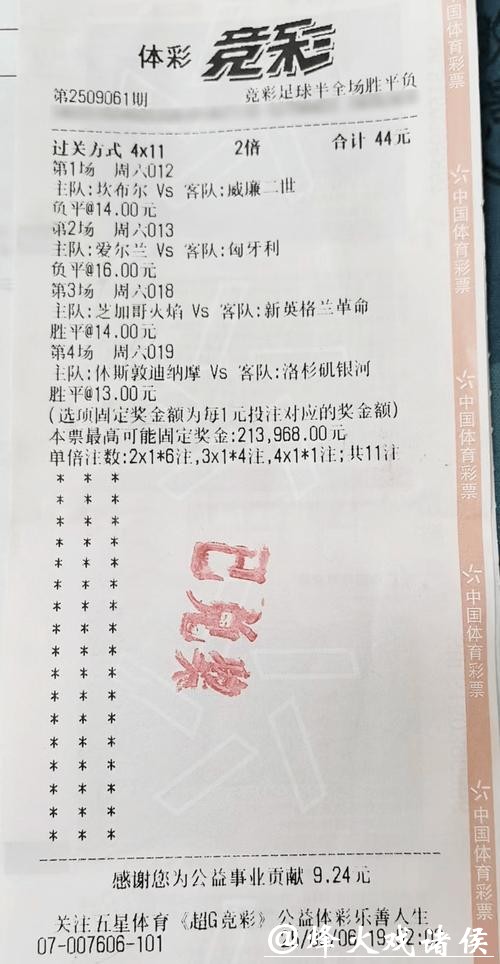 体彩 竞彩
第2509061期 竞彩足球半全场胜平负
过关方式 4x11 2倍 合计 44元
第1场 周六012
主队:坎布尔 Vs 客队:威廉二世
负平@14.00元
第2场 周六013
主队:爱尔兰 Vs 客队:匈牙利
负平@16.00元
第3场 周六018
主队:芝加哥火焰 Vs 客队:新英格兰革命
胜平@14.00元
第4场 周六019
主队:休斯敦迪纳摩 Vs 客队:洛杉矶银河
胜平@13.00元
(选项固定奖金额为每1元投注对应的奖金额)
本票最高可能固定奖金:213,968.00元
单倍注数:2x1*6注,3x1*4注,4x1*1注;共11注
* * *
* * *
* * *
* * *
* * *
* * *
* * *
* * *
* * *
* * *
* * *
* * *
* * *
* * *
* * *
* * *
* * *
* * *
已兑奖
感谢您为公益事业贡献 9.24元
关注五星体育《超G竞彩》公益体彩乐善人生
07-007606-101
@烽火戏诸侯
中国体育彩票
中国体育彩票
中国体育彩票
中国体育彩票
中国体育彩票